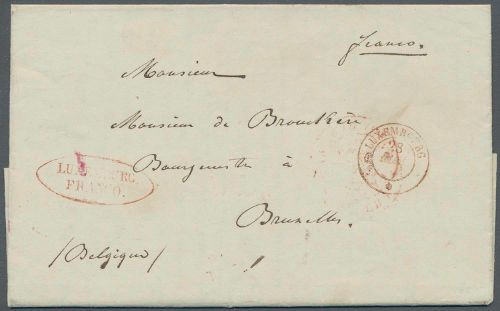 franco.
Monsieur
Monsieur de Brouckère
Bourgmestre à
Bruxelles.
/Belgique/
LUXEMBOURG
FRANCO.
LUXEMBOURG
28